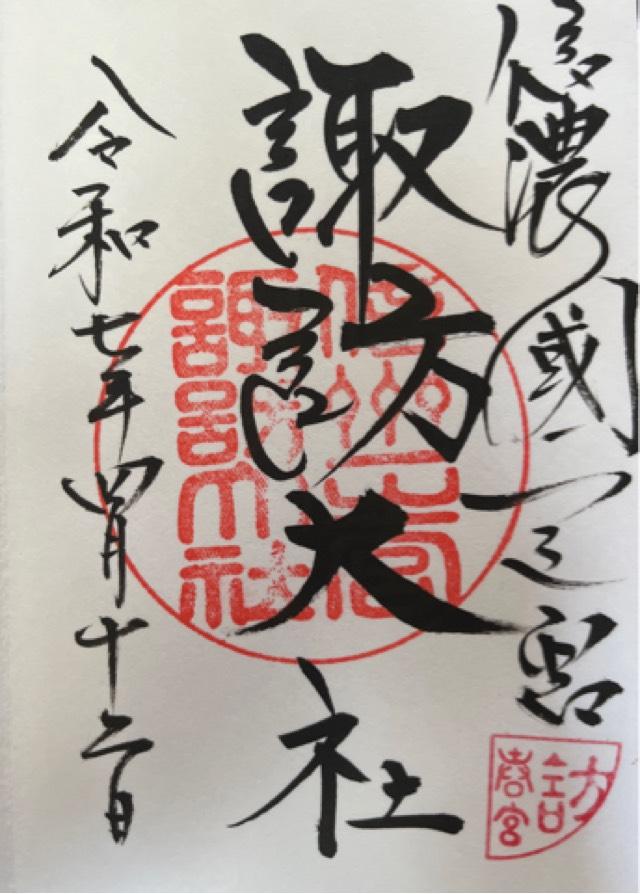 信濃國一之宮
諏訪大社
令和七年四月十二日
諏訪大社
訪
春宮